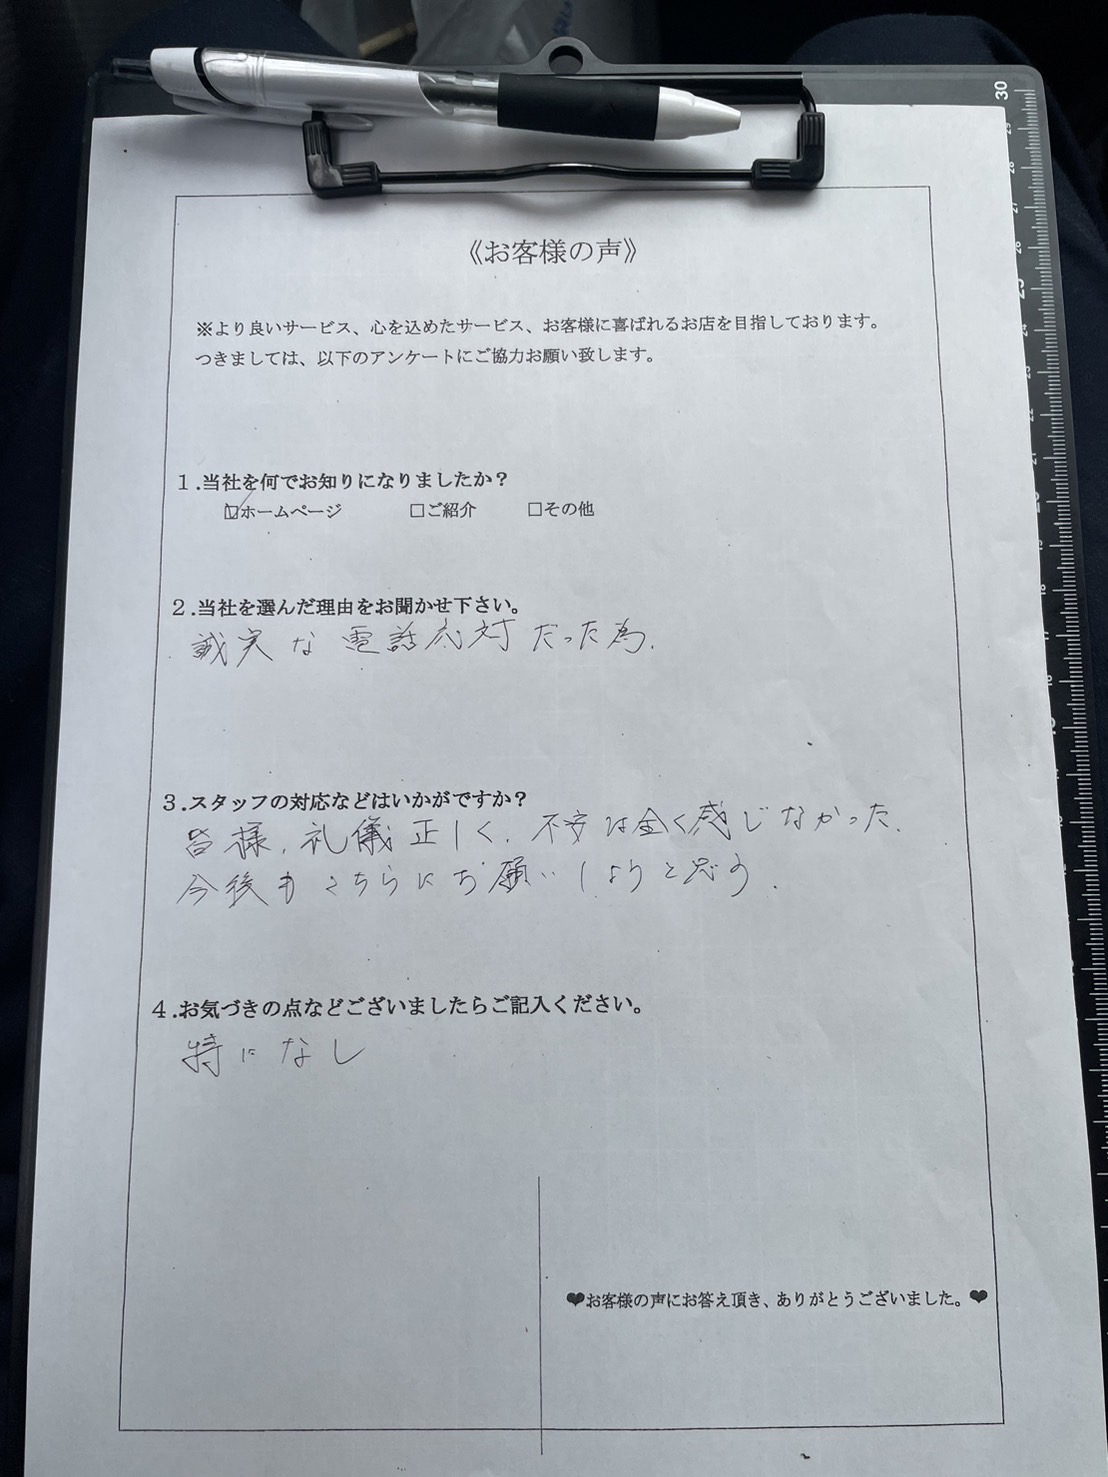 《お客様の声》
※より良いサービス、心を込めたサービス、お客様に喜ばれるお店を目指しております。
つきましては、以下のアンケートにご協力お願い致します。
1.当社を何でお知りになりましたか？
☑ホームページ □ご紹介 □その他
2.当社を選んだ理由をお聞かせ下さい。
誠実な電話応対だった為.
3.スタッフの対応などはいかがですか？
皆様、礼儀正しく、不安は全く感じなかった.
今後もこちらにお願いしようと思う.
4.お気づきの点などございましたらご記入ください。
特になし
❤お客様の声にお答え頂き、ありがとうございました。❤
30